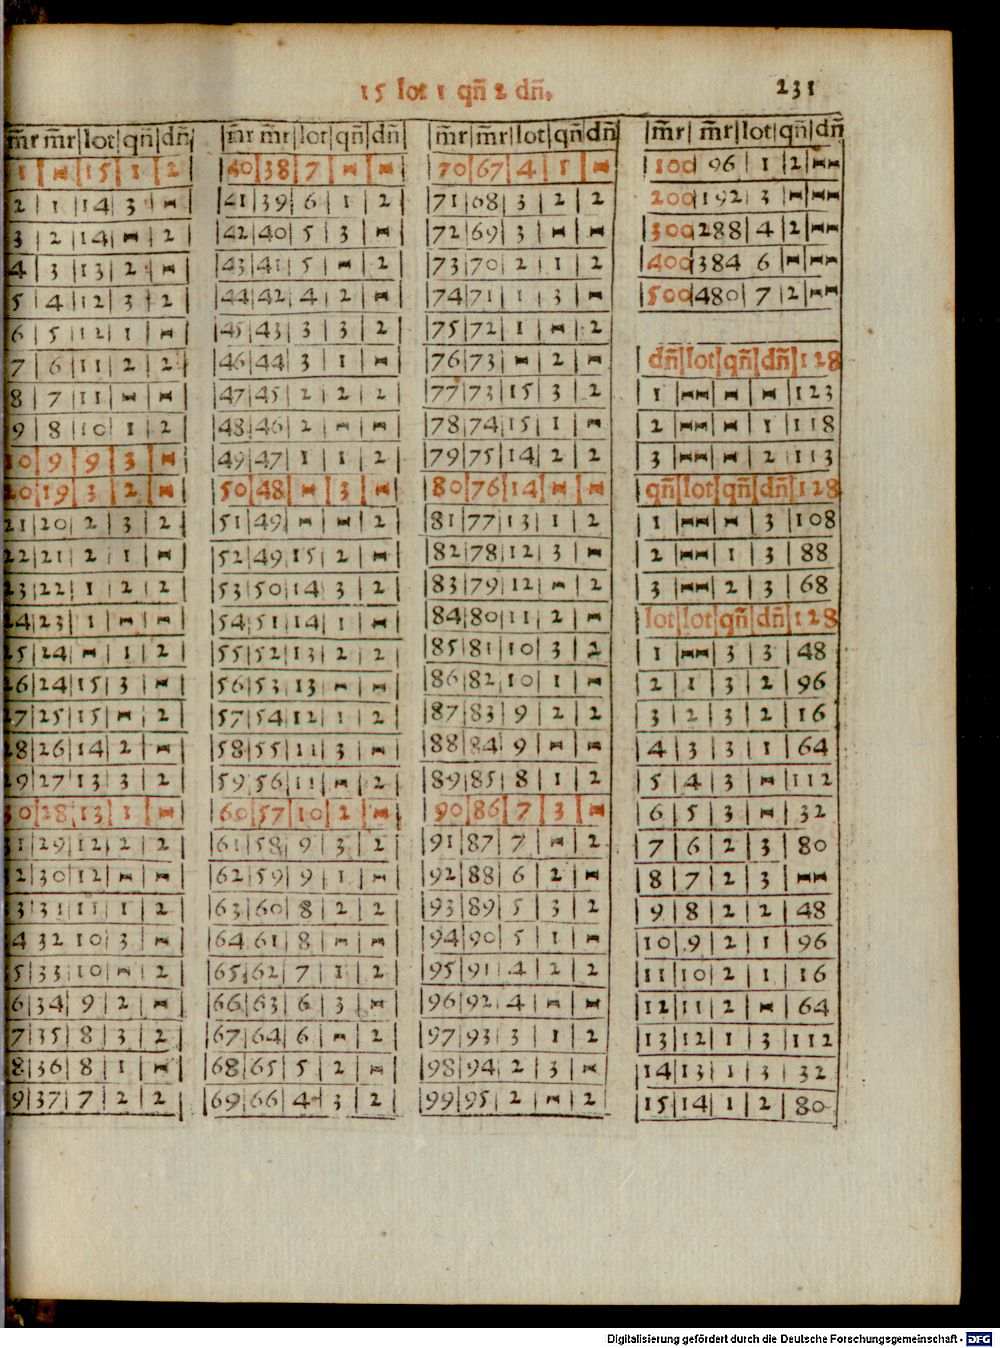 15 lot 1 qñ 2 dñ.
231
m̄r m̄r|lot|qñ|dñ|
1 | – |15| 1 | 2
2 | 1 |14| 3 | –
3 | 2 |14| – | 2
4 | 3 |13| 2 | –
5 | 4 |12| 3 | 2
6 | 5 |12| 1 | –
7 | 6 |11| 2 | 2
8 | 7 |11| – | –
9 | 8 |10| 1 | 2
10| 9 | 9 | 3 | –
20|19| 3 | 2 | –
21|20| 2 | 3 | 2
22|21| 2 | 1 | –
23|22| 1 | 2 | 2
24|23| 1 | – | –
25|24| – | 1 | 2
26|24|15| 3 | –
27|25|15| – | 2
28|26|14| 2 | –
29|27|13| 3 | 2
30|28|13| 1 | –
31|29|12| 2 | 2
2|30|12| – | –
3|31|11| 1 | 2
4 32 10| 3 | –
5|33|10| – | 2
6|34| 9 | 2 | –
7|35| 8 | 3 | 2
8|36| 8 | 1 | –
9|37| 7 | 2 | 2
|m̄r m̄r|lot|qñ|dñ|
|40|38| 7 | – | –
|41|39| 6 | 1 | 2
|42|40| 5 | 3 | –
|43|41| 5 | – | 2
|44|42| 4 | 2 | –
|45|43| 3 | 3 | 2
|46|44| 3 | 1 | –
|47|45| 2 | 2 | 2
|48|46| 2 | – | –
|49|47| 1 | 1 | 2
|50|48| – | 3 | –
|51|49| – | – | 2
|52|49|15| 2 | –
|53|50|14| 3 | 2
|54|51|14| 1 | –
|55|52|13| 2 | 2
|56|53|13| – | –
|57|54|12| 1 | 2
|58|55|11| 3 | –
|59|56|11| – | 2
|60|57|10| 2 | –
|61|58| 9 | 3 | 2
|62|59| 9 | 1 | –
|63|60| 8 | 2 | 2
|64|61| 8 | – | –
|65|62| 7 | 1 | 2
|66|63| 6 | 3 | –
|67|64| 6 | – | 2
|68|65| 5 | 2 | –
|69|66| 4 | 3 | 2
|m̄r|m̄r|lot|qñ|dñ|
|70|67| 4 | 1 | –
|71|68| 3 | 2 | 2
|72|69| 3 | – | –
|73|70| 2 | 1 | 2
|74|71| 1 | 3 | –
|75|72| 1 | – | 2
|76|73| – | 2 | –
|77|73|15| 3 | 2
|78|74|15| 1 | –
|79|75|14| 2 | 2
|80|76|14| – | –
|81|77|13| 1 | 2
|82|78|12| 3 | –
|83|79|12| – | 2
|84|80|11| 2 | –
|85|81|10| 3 | 2
|86|82|10| 1 | –
|87|83| 9 | 2 | 2
|88|84| 9 | – | –
|89|85| 8 | 1 | 2
|90|86| 7 | 3 | –
|91|87| 7 | – | 2
|92|88| 6 | 2 | –
|93|89| 5 | 3 | 2
|94|90| 5 | 1 | –
|95|91| 4 | 2 | 2
|96|92| 4 | – | –
|97|93| 3 | 1 | 2
|98|94| 2 | 3 | –
|99|95| 2 | – | 2
|m̄r| m̄r|lot|qñ|dñ
|100| 96 | 1 | 2 | ––
|200|192| 3 | – | ––
|300|288| 4 | 2 | ––
|400|384| 6 | – | ––
|500|480| 7 | 2 | ––
|dñ|lot|qñ|dñ|128
| 1 | –– | – | – |123
| 2 | –– | – | 1 |118
| 3 | –– | – | 2 |113
|qñ|lot|qñ|dñ|128
| 1 | –– | – | 3 |108
| 2 | –– | 1 | 3 | 88
| 3 | –– | 2 | 3 | 68
|lot|lot|qñ|dñ|128
| 1 | –– | 3 | 3 | 48
| 2 | 1 | 3 | 2 | 96
| 3 | 2 | 3 | 2 | 16
| 4 | 3 | 3 | 1 | 64
| 5 | 4 | 3 | – |112
| 6 | 5 | 3 | – | 32
| 7 | 6 | 2 | 3 | 80
| 8 | 7 | 2 | 3 | ––
| 9 | 8 | 2 | 2 | 48
|10| 9 | 2 | 1 | 96
|11|10| 2 | 1 | 16
|12|11| 2 | – | 64
|13|12| 1 | 3 |112
|14|13| 1 | 3 | 32
|15|14| 1 | 2 | 80
Digitalisierung gefördert durch die Deutsche Forschungsgemeinschaft - DFG